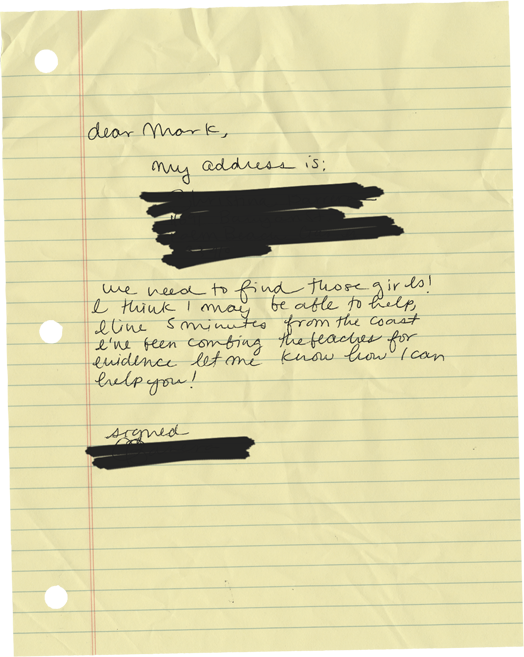 dear Mark,
my address is:
we need to find those girls!
I think I may be able to help,
I live 5 minutes from the coast
I've been combing the beaches for
evidence let me know how I can
help you!
signed